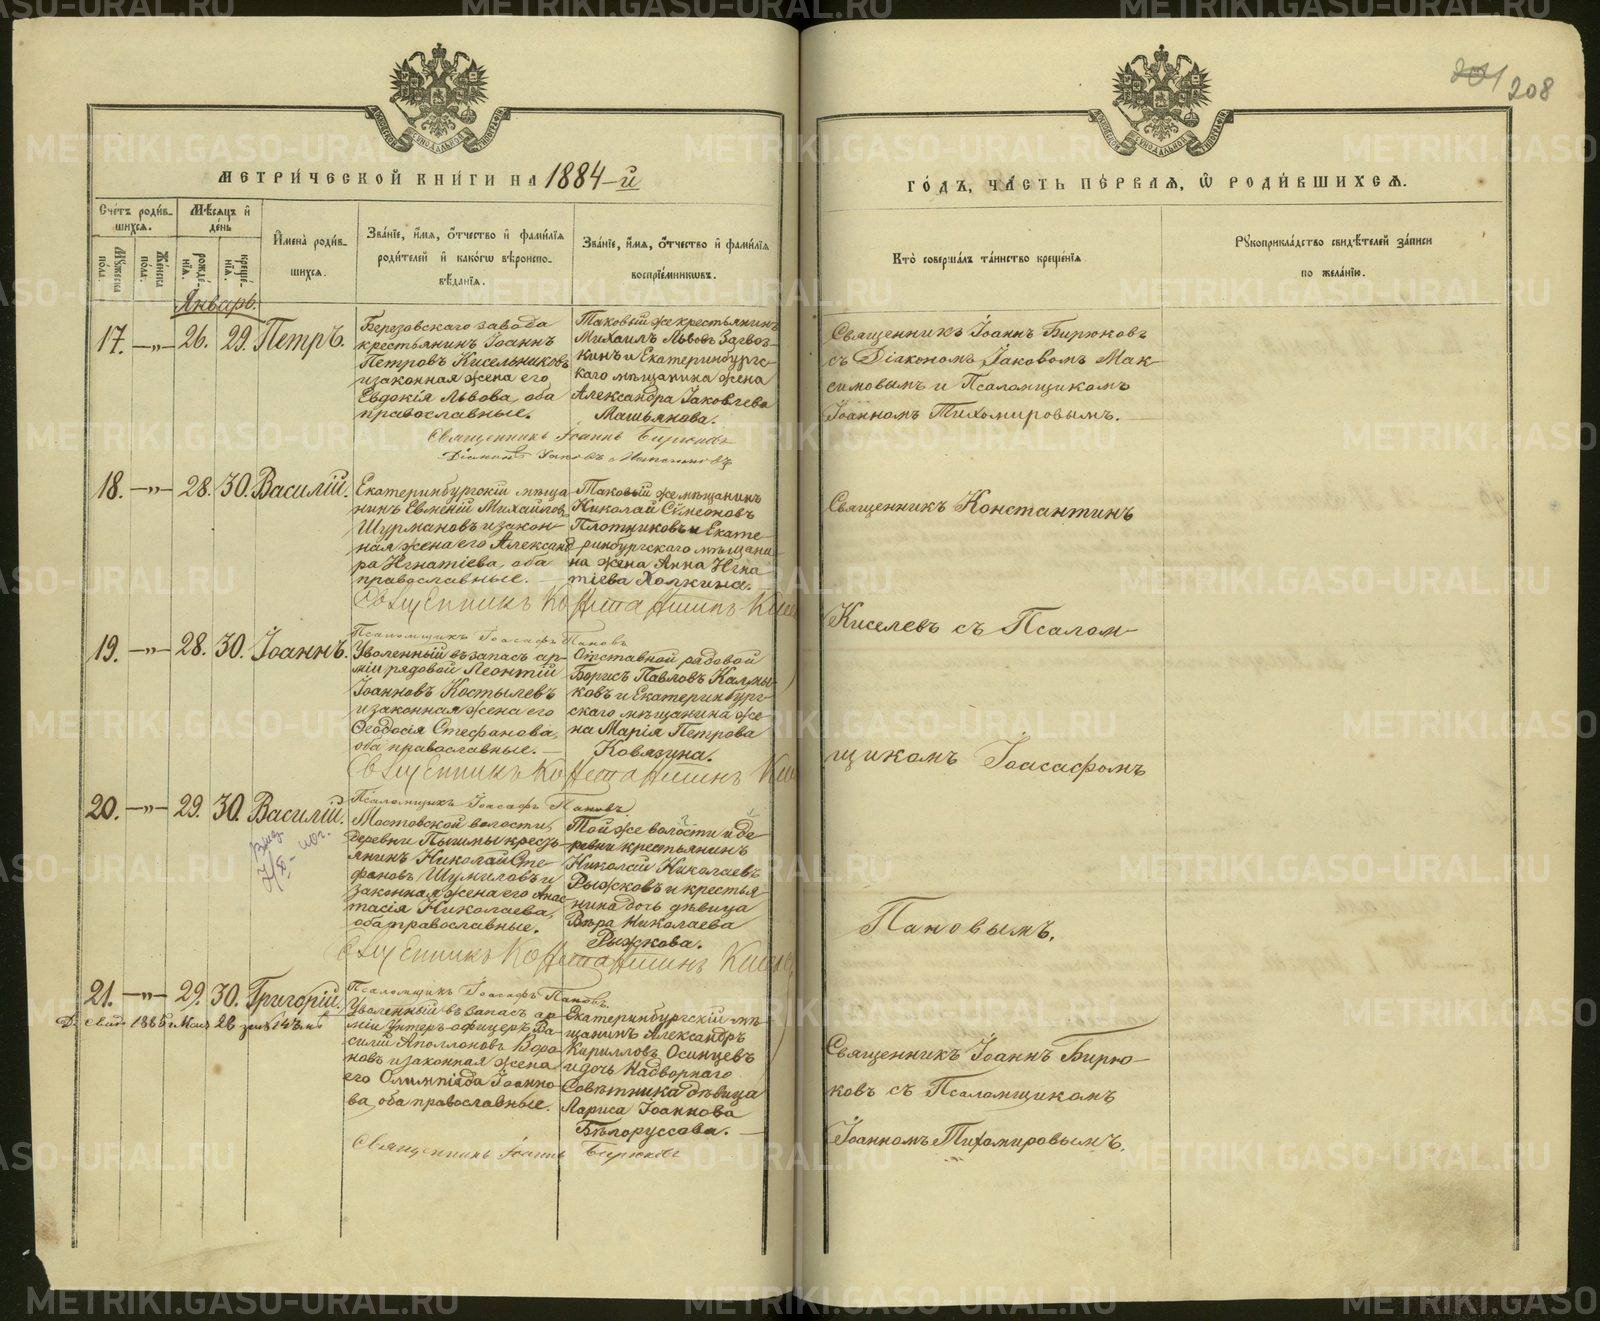 201 208
МЕТРИ́ЧЕСКОЙ КНИ́ГИ НА 1884-й
ГО́ДЪ, ЧА́СТЬ ПЕ́РВАЯ, Ѡ РОДИ́ВШИХСЯ.
Сче́тъ роди́в-
шихся.
Му́жеска по́ла.
Же́нска по́ла.
Мѣ́сяцъ и
де́нь
рожде́нія.
креще́нія.
И́мена роди́в-
шихся.
Зва́ніе, и́мя, о́тчество и фами́лія
роди́телей и како́гѡ вѣроиспо-
вѣ́данія.
Зва́ніе, и́мя, о́тчество и фами́лія
воспріе́мниковъ.
Кто̀ соверша́лъ та́инство креще́нія
Рꙋкоприкла́дство свидѣ́телей за́писи
по жела́нію.
Январь.
17. —„— 26. 29. Петръ.
Березовскаго завода
крестьянинъ Іоаннъ
Петровъ Кисельниковъ
и законная жена его
Евдокія Львова, оба
православные.
Таковый же крестьянинъ
Михаилъ Львовъ Загвоз-
кинъ и Екатеринбургс-
каго мѣщанина жена
Александра Іаковлева
Машьянова.
Священникъ Іоаннъ Бирюковъ
съ Діакономъ Іаковомъ Мак-
симовымъ и Псаломщикомъ
Іоанномъ Тихомировымъ.
Священникъ Іоаннъ Бирюковъ
Діаконъ Іаковъ Максимовъ
18. —„— 28. 30. Василій.
Екатеринбургскій мѣща-
нинъ Евмений Михайловъ
Шурмановъ и закон-
ная жена его Александ-
ра Игнатіева, оба
православные.
Таковый же мѣщанинъ
Николай Сѵмеоновъ
Плотниковъ и Екате-
ринбургскаго мѣщани-
на жена Анна Игна-
тіева Холкина.
Священникъ Константинъ
Священникъ Константинъ
Псаломщикъ Іоасафъ Пановъ
Киселевъ съ Псалом-
19. —„— 28. 30. Іоаннъ.
Уволенный въ запасъ ар-
міи рядовой Леонтій
Іоанновъ Костылевъ
и законная жена его
Ѳеодосія Стефанова,
оба православные.
Отставной рядовой
Борисъ Павловъ Калмы-
ковъ и Екатеринбург-
скаго мѣщанина же-
на Марія Петрова
Ковязина.
щикомъ Іоасафомъ
Священникъ Константинъ
Псаломщикъ Іоасафъ Пановъ
20. —„— 29. 30. Василій.
Мостовской волости,
деревни Пышмы кресть-
янинъ Николай Сте-
фановъ Шумиловъ и
законная жена его Анас-
тасія Николаева,
оба православные.
Той же волости и де-
ревни крестьянинъ
Николай Николаевъ
Рыжковъ и крестья-
нина дочь дѣвица
Вѣра Николаева
Рыжкова.
Пановымъ.
Священникъ Константинъ
Псаломщикъ Іоасафъ Пановъ
21. —„— 29. 30. Григорій.
Уволенный въ запасъ ар-
міи Унтеръ-офицеръ Ва-
силій Аполлоновъ Воро-
новъ и законная жена
его Олимпіада Іоанно-
ва, оба православные.
Екатеринбургскій мѣ-
щанинъ Александръ
Кирилловъ Осинцевъ
и дочь Надворнаго
Совѣтника дѣвица
Лариса Іоаннова
Бѣлоруссова.
Священникъ Іоаннъ Бирю-
ковъ съ Псаломщикомъ
Іоанномъ Тихомировымъ.
Священникъ Іоаннъ Бирюковъ